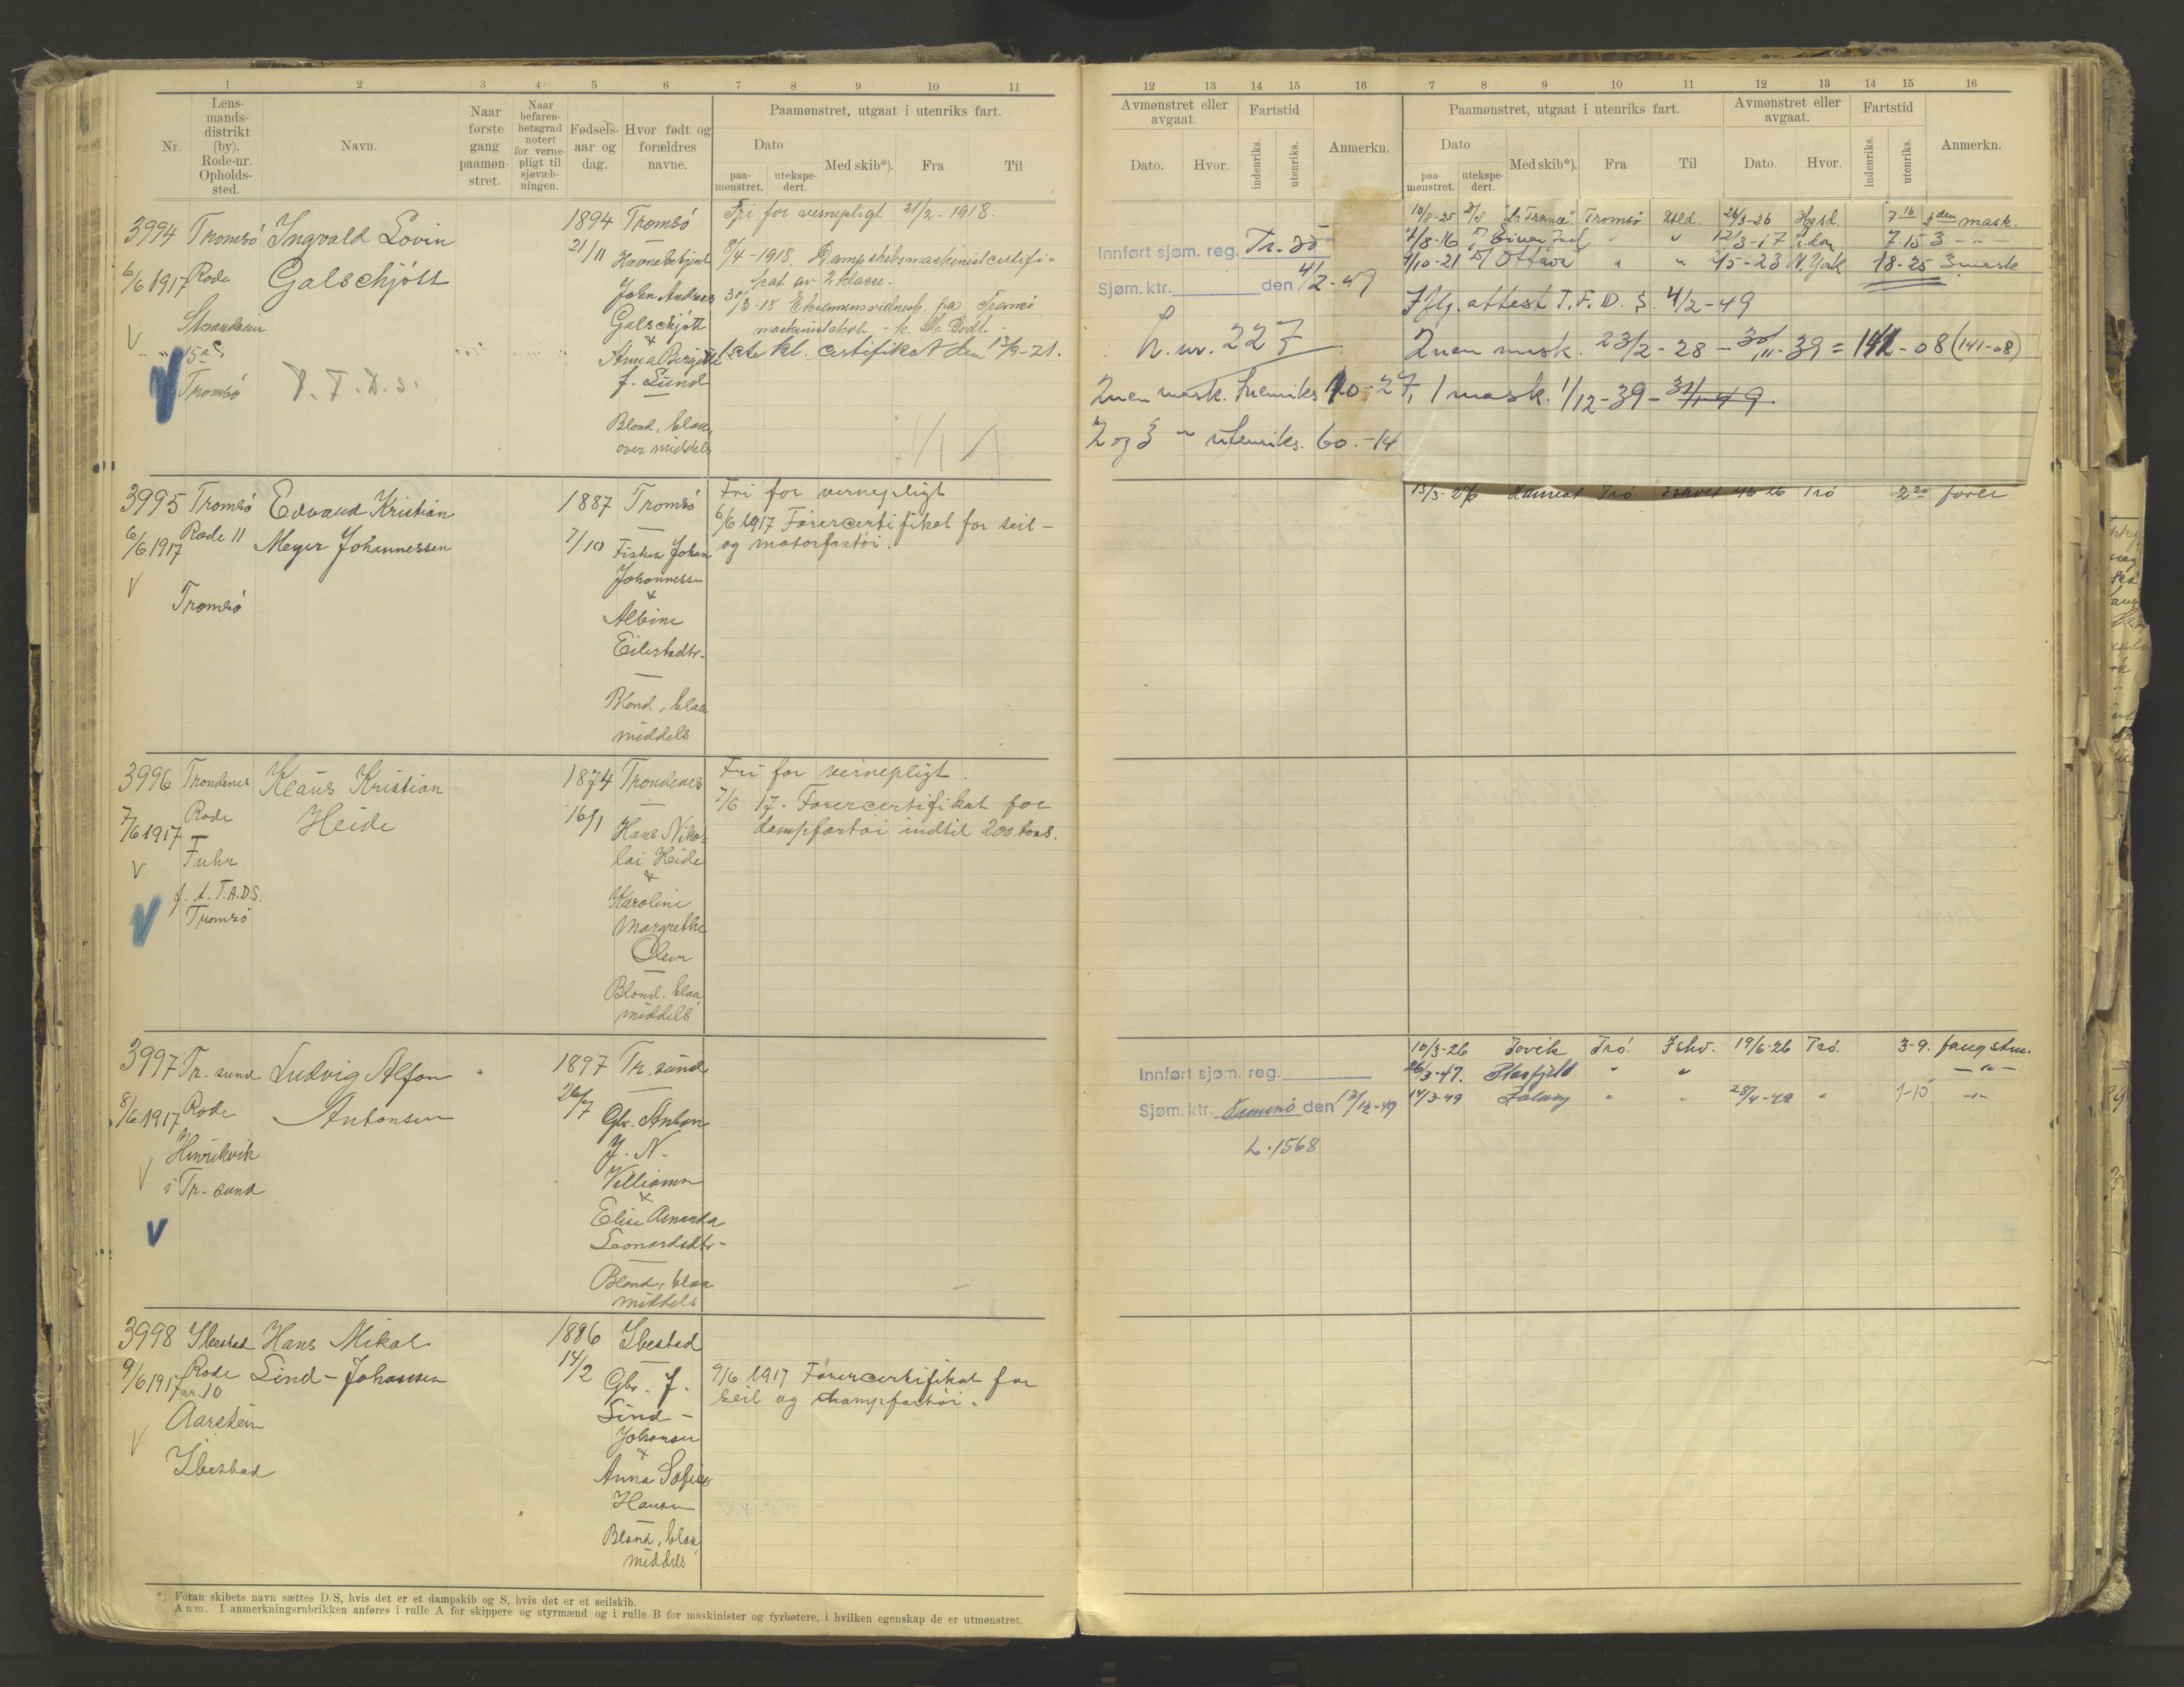 1 2 3 4 5 6 7 8 9 10 11
Nr.
Lens-
mands-
distrikt
(by).
Rode-nr.
Opholds-
sted.
Navn.
Naar
første
gang
paamøn-
stret.
Naar
befaren-
hetsgrad
notert
for verne-
pligt til
sjøvæb-
ningen.
Fødsels-
aar og
dag.
Hvor født og
forældres
navne.
Paamønstret, utgaat i utenriks fart.
Dato
paa-
mønstret.
utekspe-
dert.
Med skib*).
Fra
Til
3994
6/6 1917
Tromsö
Rode
15a
Tromsö
Ingvald Lovin
Galschjött
T. F. D. S.
1894
21/11
Tromsö
John Andreas
Galschjött
&
Anna Birgitte
f. Lund
Blond, blaa,
over middels
Fri for vernepligt 21/2-1918.
8/4-1918. Dampskibsmaskinistcertifi-
kat av 2 klasse.
30/3-18 Eksamensvidnesb. fra Tromsö
maskinistskole
1ste kl. certifikat den 13/9-21.
3995
6/6 1917
Tromsö
Rode 11
Tromsö
Edvard Kristian
Meyer Johannessen
1887
7/10
Tromsö
Fisker Johan
Johannessen
&
Albine
Eilertsdtr.
Blond, blaa
middels
Fri for vernepligt
6/6 1917 Förercertifikat for seil-
og motorfartöi.
3996
7/6 1917
Trondenes
Rode
Fuhr
T.A.D.S.
Tromsö
Klaus Kristian
Heide
1874
16/1
Trondenes
Hans Niko-
lai Heide
&
Karoline
Margrethe
Olsen
Blond, blaa,
middels
Fri for vernepligt.
7/6 17. Förercertifikat for
dampfartöi indtil 200 tons.
3997
8/6 1917
Tr.-sund
Rode
Hinrikvik
i Tr.-sund
Ludvig Alfon
Antonsen
1897
26/7
Tr. sund
Gbr. Anton
J. N.
Villiamsen
&
Elise Amanda
Leonardsdtr.
Blond, blaa
middels
3998
9/6 1917
Ibestad
Rode
nr. 10
Aarstein
Ibestad
Hans Mikal
Lind-Johansen
1886
14/2
Ibestad
Gbr. J.
Lind-
Johansen
&
Anna Sofie
Hansen
Blond, blaa,
middels
9/6 1917 Förercertifikat for
seil og dampfartöi.
*) Foran skibets navn sættes D/S, hvis det er et dampskib og S, hvis det er et seilskib.
Anm. I anmerkningsrubrikken anføres i rulle A for skippere og styrmænd og i rulle B for maskinister og fyrbøtere, i hvilken egenskap de er utmønstret.
12 13 14 15 16
Avmønstret eller
avgaat.
Dato.
Hvor.
Fartstid
indenriks.
utenriks.
Anmerkn.
7 8 9 10 11 12 13 14 15 16
Paamønstret, utgaat i utenriks fart.
Dato
paa-
mønstret.
utekspe-
dert.
Med skib*).
Fra
Til
Avmønstret eller
avgaat.
Dato.
Hvor.
Fartstid
indenriks.
utenriks.
Anmerkn.
Innført sjøm. reg. Tr. sö
Sjøm. ktr. den 4/2-49
L. nr. 227
2nen mask. Inenriks 10-27, 1 mask. 1/12-39-31/1-49.
2 og 3 " utenriks. 60.-14
10/8-25 "La France" Tromsö Utld. 26/3-26 7 16 2den mask.
7/8-16 " " 12/3-17 7.15 3 - " -
9/10-21 D/ Ottava " " 2/5-23 N. York 18-25 3 mask
Iflg. attest T.F.D.S. 4/2-49
2nen mask. 23/2-28-30/11-39 = 141-08 (141-08)
13/3-26 Trö Ishvet Trö 2 20 förer
Innført sjøm. reg.
Sjøm. ktr. Tromsö den 13/12-49
L. 1568
10/3-26 Jovik Trö. Ishv. 19/6-26 Trö. 3-9. fangstm.
26/3-47. " " - " -
14/3-49 " " 28/4-49 " 1-15 - " -